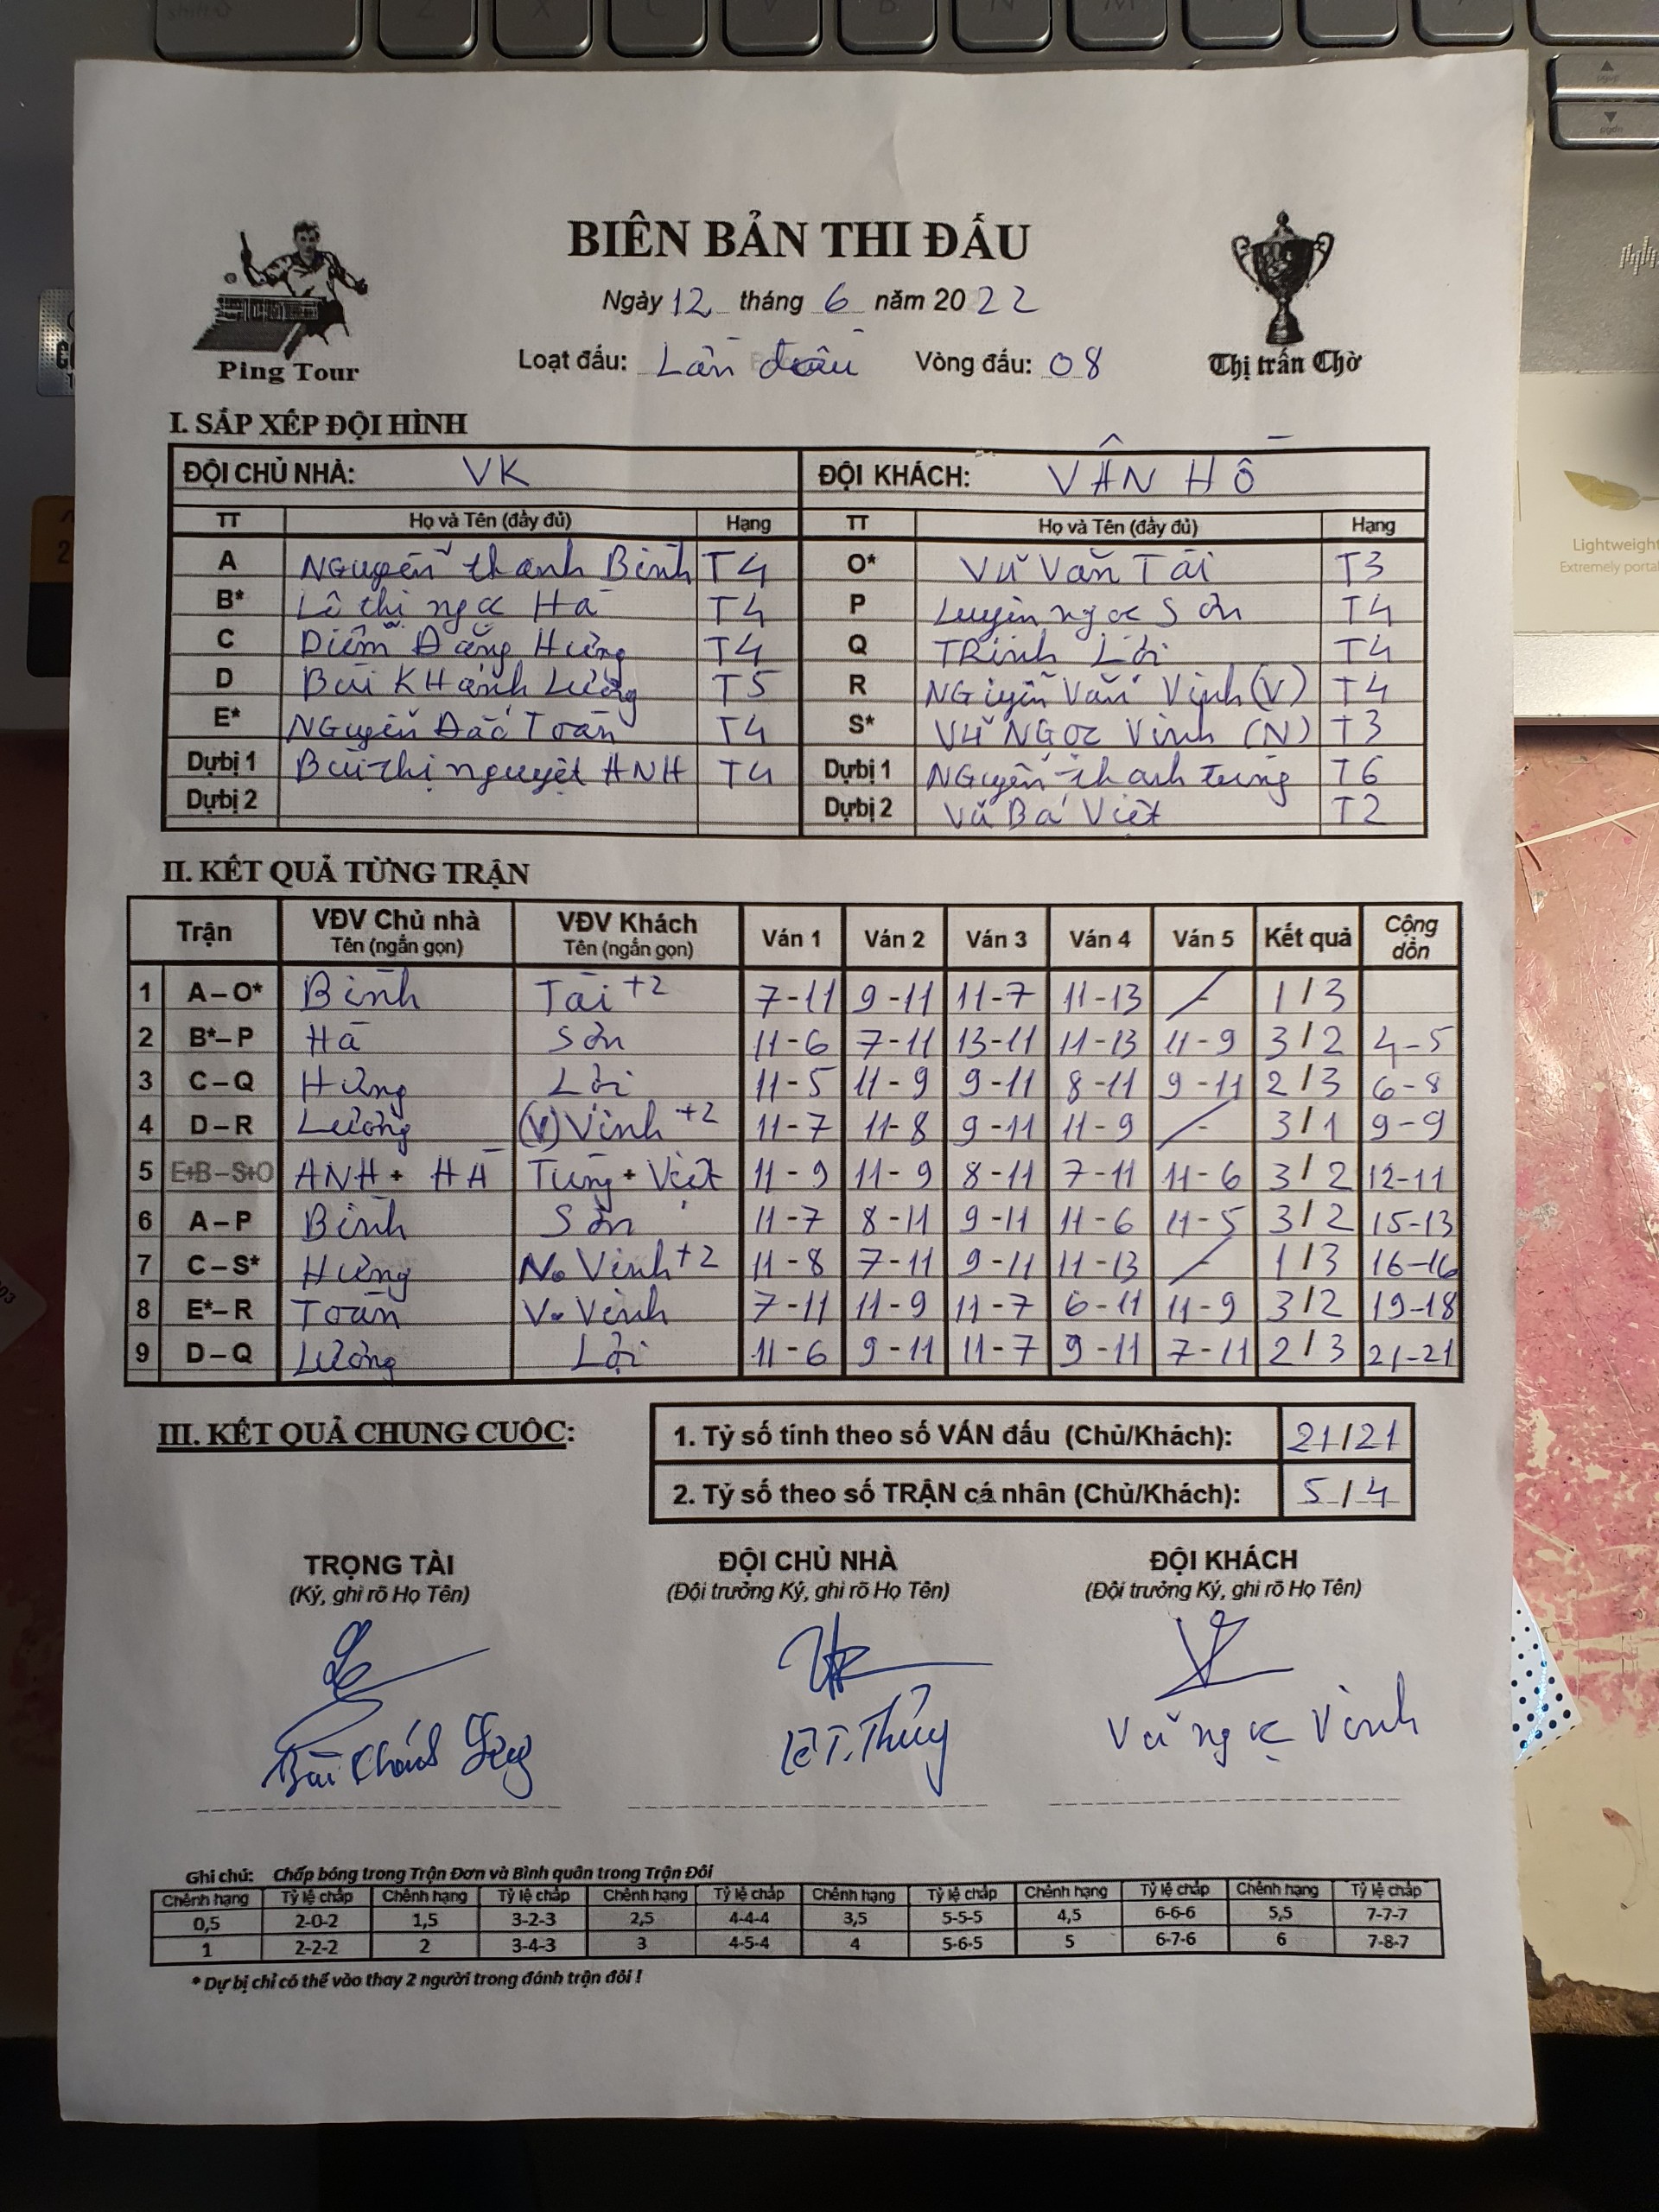 BIÊN BẢN THI ĐẤU
Ngày 12 tháng 6 năm 2022
Ping Tour
Loạt đấu: Lần đầu Vòng đấu: 08
Thị trấn Chờ
I. SẮP XẾP ĐỘI HÌNH
ĐỘI CHỦ NHÀ: VK ĐỘI KHÁCH: VÂN HỒ
TT Họ và Tên (đầy đủ) Hạng TT Họ và Tên (đầy đủ) Hạng
A Nguyễn thanh Bình T4 O* Vũ Văn Tài T3
B* Lê thị ngọc Hà T4 P Luyện ngọc Sơn T4
C Diêm Đăng Hưng T4 Q TRịnh Lợi T4
D Bùi KHánh Lường T5 R NGuyễn Văn Vịnh (V) T4
E* NGuyễn Đắc Toàn T4 S* Vũ NGọc Vinh (N) T3
Dự bị 1 Bùi thị nguyệt ANH T4 Dự bị 1 NGuyễn thanh tùng T6
Dự bị 2 Dự bị 2 Vũ Bá Việt T2
II. KẾT QUẢ TỪNG TRẬN
Trận VĐV Chủ nhà Tên (ngắn gọn) VĐV Khách Tên (ngắn gọn) Ván 1 Ván 2 Ván 3 Ván 4 Ván 5 Kết quả Cộng dồn
1 A – O* Bình Tài +2 7-11 9-11 11-7 11-13 - 1/3
2 B*– P Hà Sơn 11-6 7-11 13-11 11-13 11-9 3/2 4-5
3 C – Q Hưng Lợi 11-5 11-9 9-11 8-11 9-11 2/3 6-8
4 D – R Lường (V) Vịnh +2 11-7 11-8 9-11 11-9 - 3/1 9-9
5 E+B – S+O ANH + HÀ Tùng + Việt 11-9 11-9 8-11 7-11 11-6 3/2 12-11
6 A – P Bình Sơn 11-7 8-11 9-11 11-6 11-5 3/2 15-13
7 C – S* Hưng N. Vinh +2 11-8 7-11 9-11 11-13 - 1/3 16-16
8 E*– R Toàn V. Vịnh 7-11 11-9 11-7 6-11 11-9 3/2 19-18
9 D – Q Lường Lợi 11-6 9-11 11-7 9-11 7-11 2/3 21-21
III. KẾT QUẢ CHUNG CUỘC:
1. Tỷ số tính theo số VÁN đấu (Chủ/Khách): 21/21
2. Tỷ số theo số TRẬN cá nhân (Chủ/Khách): 5/4
TRỌNG TÀI ĐỘI CHỦ NHÀ ĐỘI KHÁCH
(Ký, ghi rõ Họ Tên) (Đội trưởng Ký, ghi rõ Họ Tên) (Đội trưởng Ký, ghi rõ Họ Tên)
Bùi Khánh Lê T. Thủy Vũ ngọc Vinh
Ghi chú: Chấp bóng trong Trận Đơn và Bình quân trong Trận Đôi
Chênh hạng Tỷ lệ chấp Chênh hạng Tỷ lệ chấp Chênh hạng Tỷ lệ chấp Chênh hạng Tỷ lệ chấp Chênh hạng Tỷ lệ chấp Chênh hạng Tỷ lệ chấp
0,5 2-0-2 1,5 3-2-3 2,5 4-4-4 3,5 5-5-5 4,5 6-6-6 5,5 7-7-7
1 2-2-2 2 3-4-3 3 4-5-4 4 5-6-5 5 6-7-6 6 7-8-7
* Dự bị chỉ có thể vào thay 2 người trong đánh trận đôi !
Lightweight